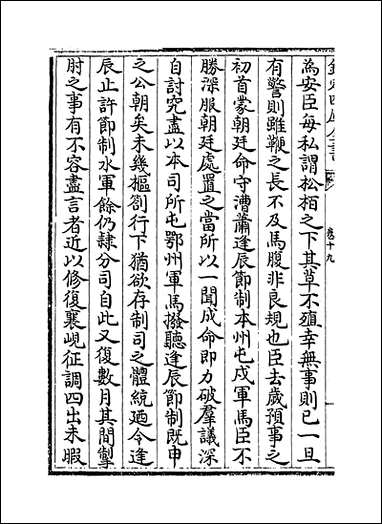 為安臣每私謂松栢之下其草不殖幸無事則已一旦
有警則雖鞭之長不及馬腹非良規也臣去歲預事之
初首蒙朝廷命守漕蕭逢辰節制本州屯戍軍馬臣不
勝深服朝廷處置之當所以一聞成命即力破羣議深
自討究盡以本司所屯鄂州軍馬撥聽逢辰節制既申
之公朝矣未幾樞劄行下猶欲存制司之體統廼令逢
辰止許節制水軍餘仍隷分司自此又復數月其間掣
肘之事有不容盡言者近以修復襄峴征調四出未暇
欽定四庫全書
卷十九